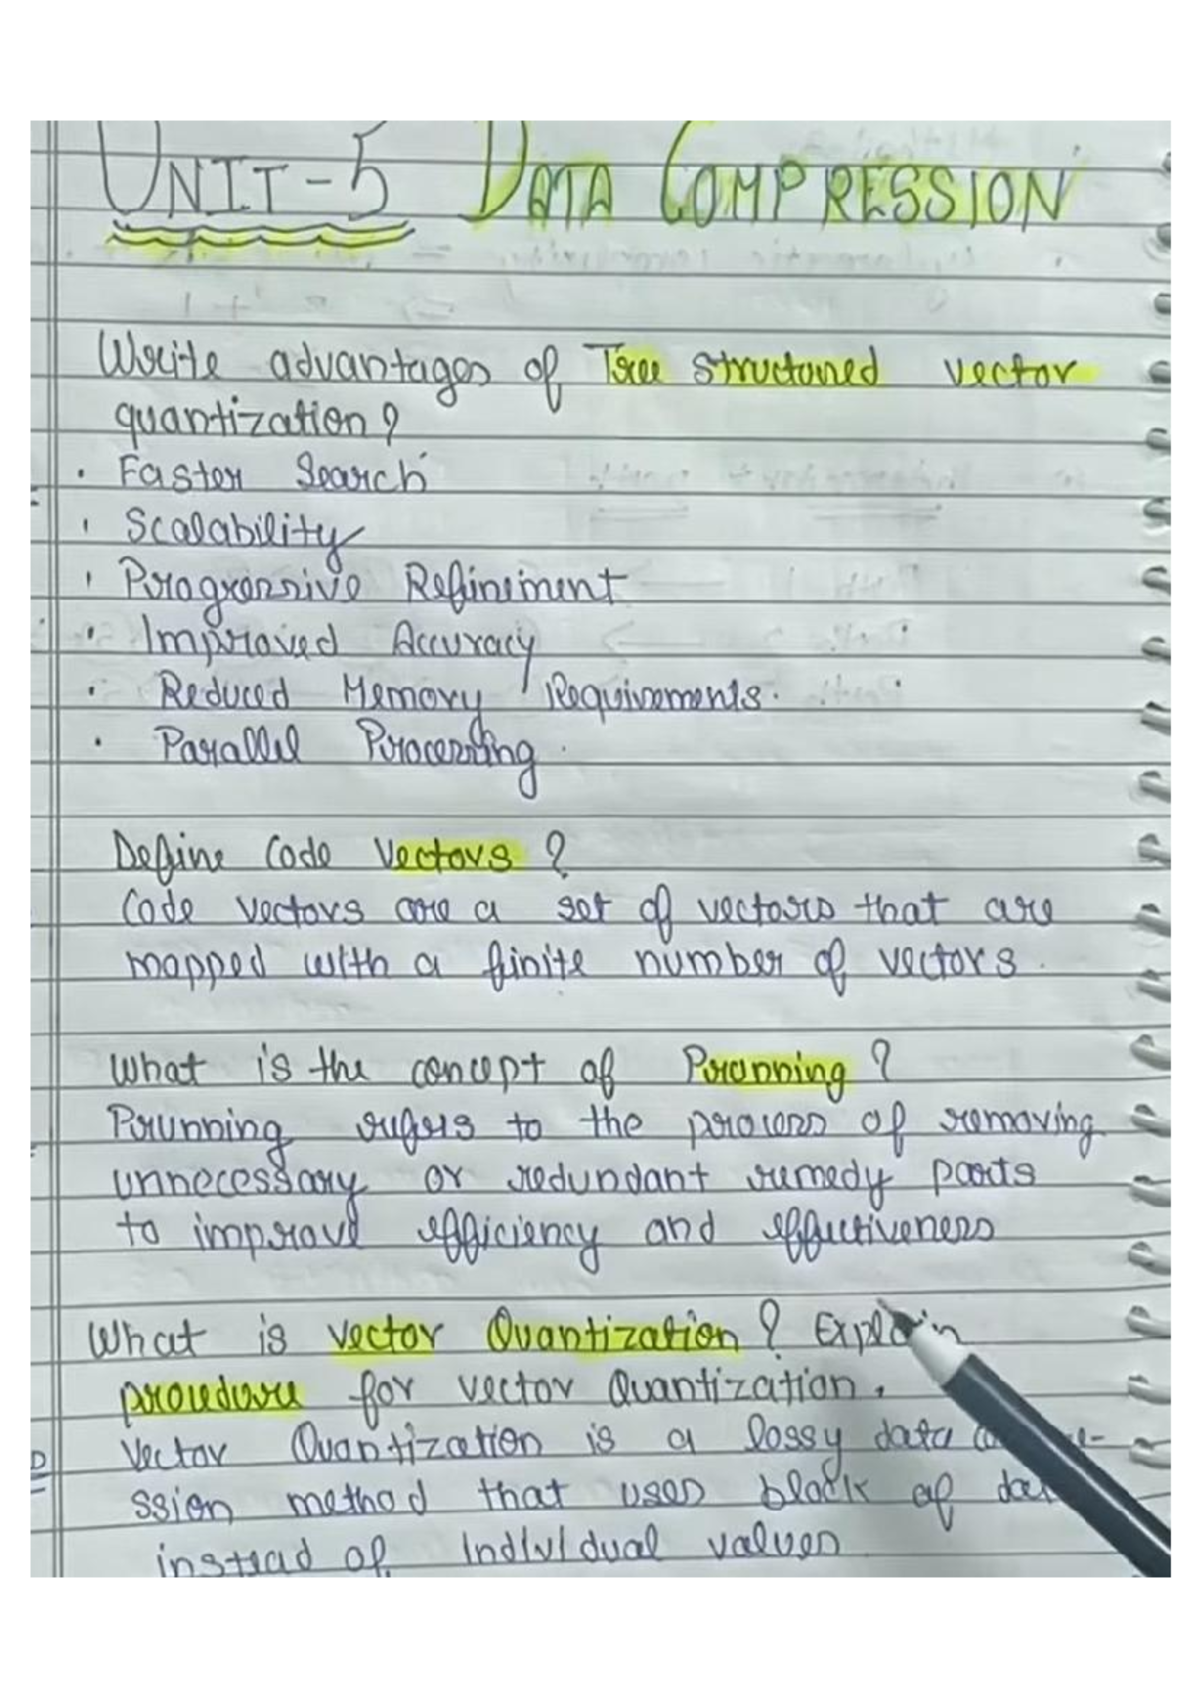 UNIT-5 DATA COMPRESSION
Write advantages of Tree structured vector
quantization?
· Faster Search
· Scalability
· Progressive Refinement
· Improved Accuracy
· Reduced Memory Requirements.
· Parallel Processing.
Define Code Vectors ?
Code vectors are a set of vectors that are
mapped with a finite number of vectors.
What is the concept of Prunning ?
Prunning refers to the process of removing
unnecessary or redundant remedy parts
to improve efficiency and effectiveness
What is vector Quantization ? Explain
procedure for vector Quantization.
Vector Quantization is a lossy data
ssion method that uses block of
instead of individual values